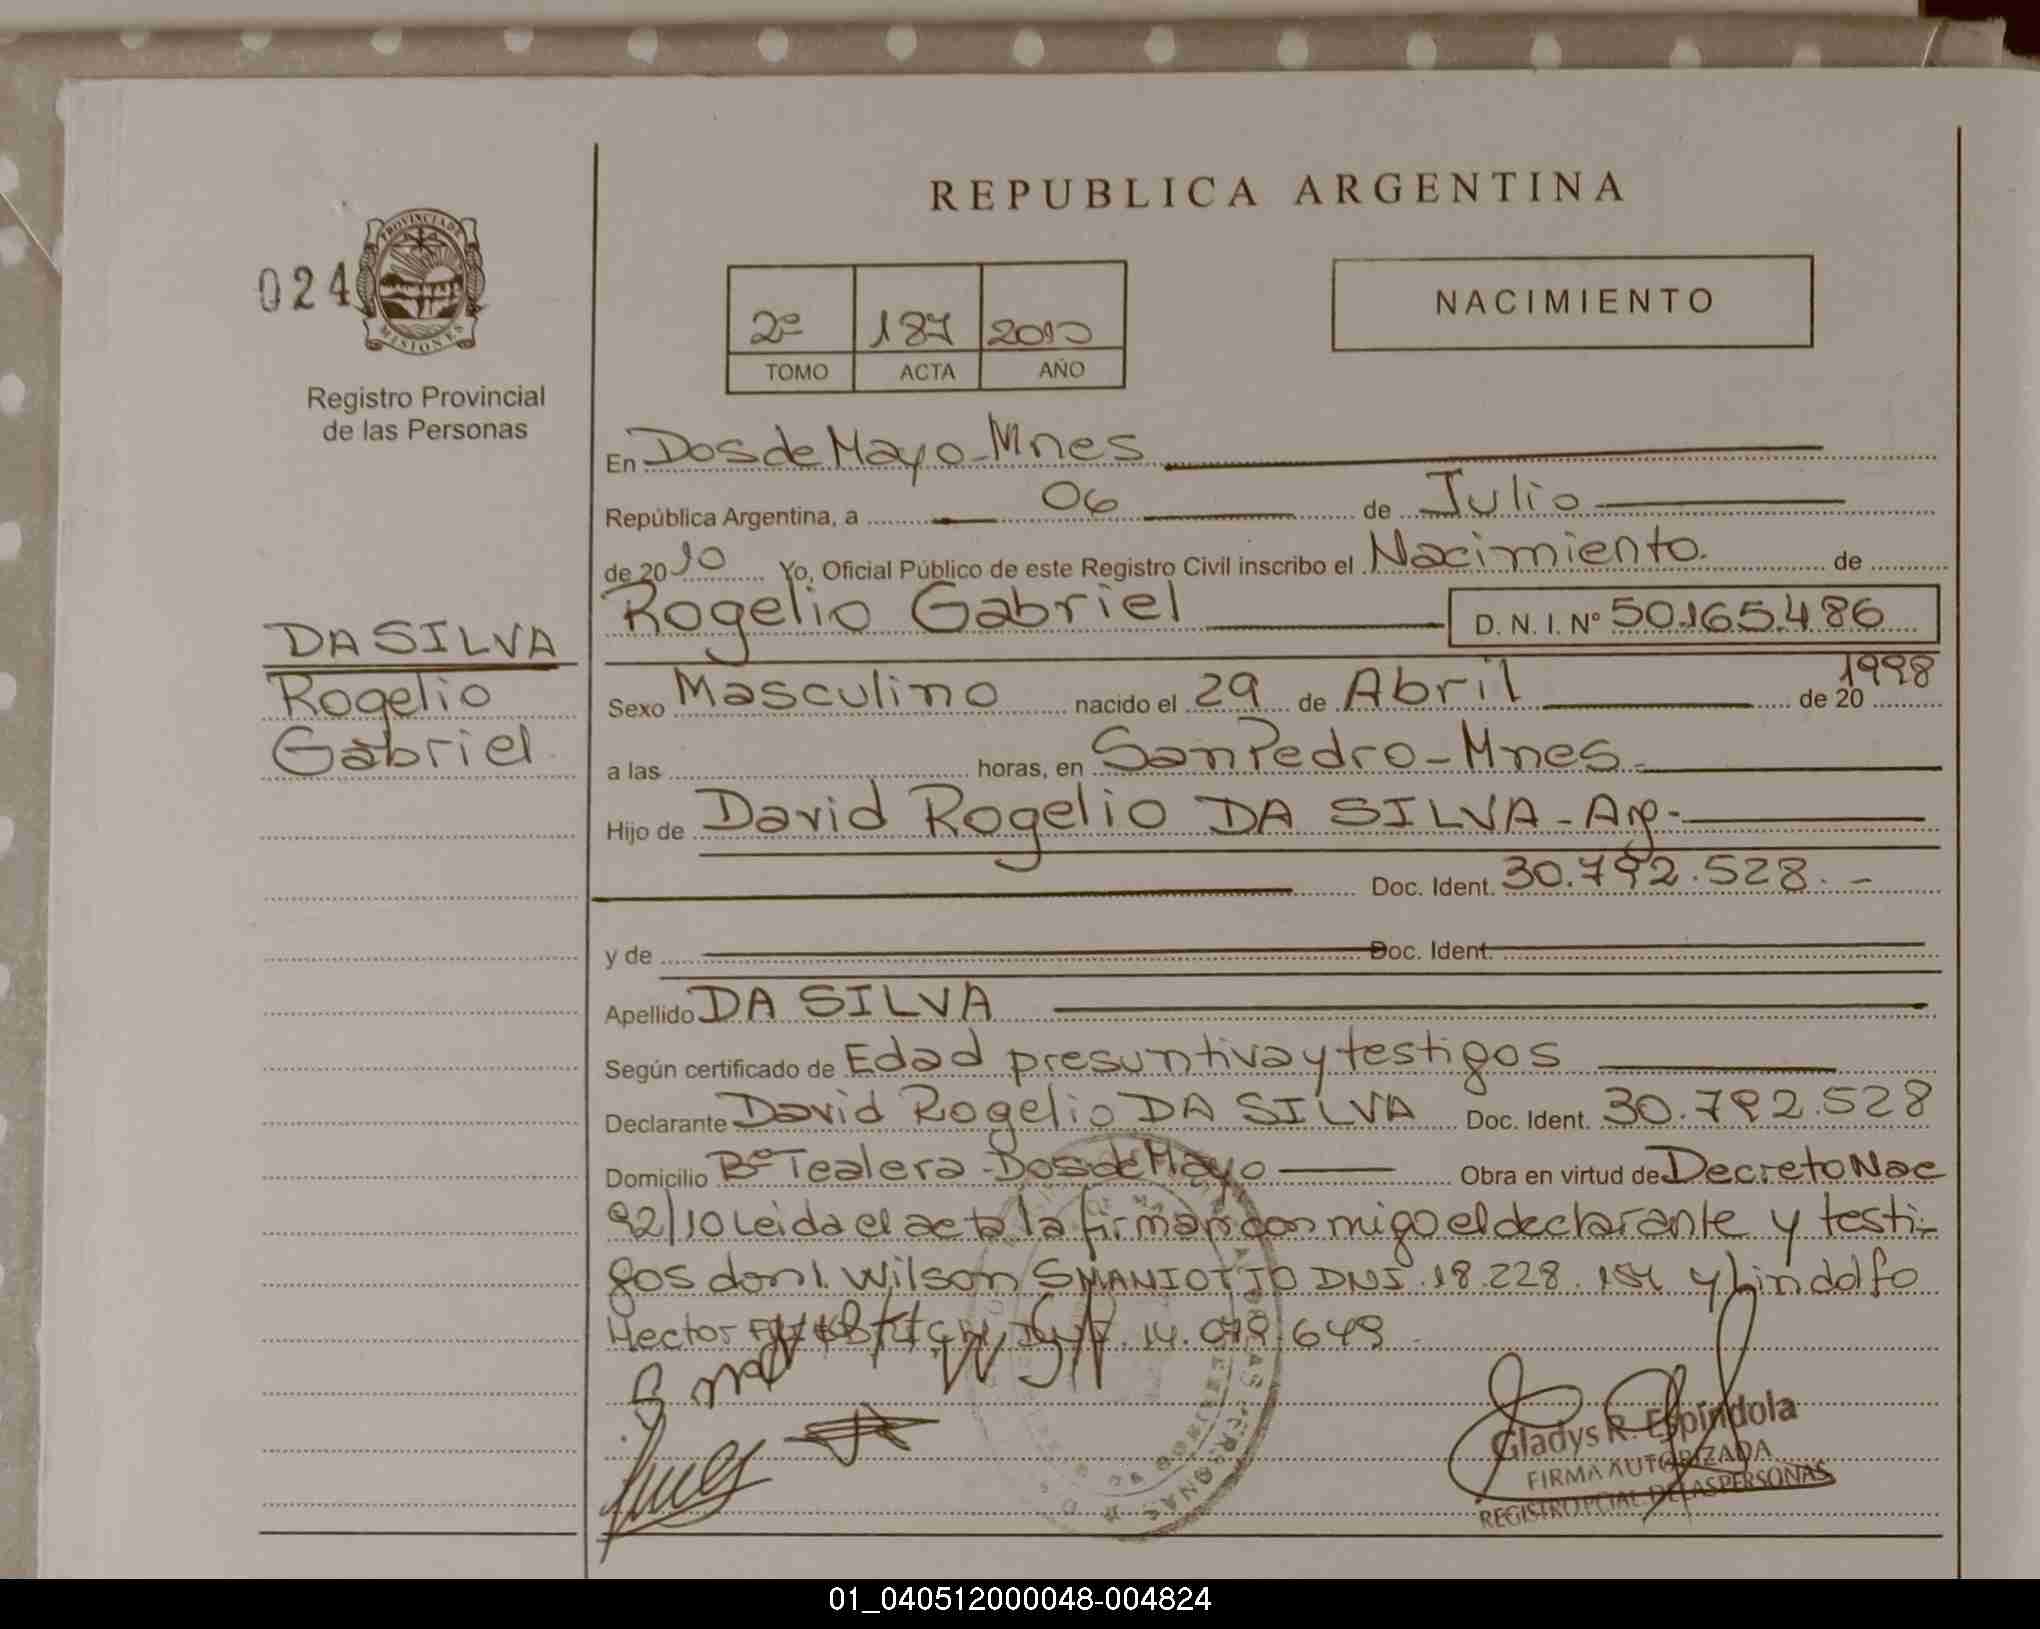 REPUBLICA ARGENTINA
024
PROVINCIA DE
MISIONES
Registro Provincial
de las Personas
2º 187 2010
TOMO ACTA AÑO
NACIMIENTO
DA SILVA
Rogelio
Gabriel
En Dos de Mayo - Mnes
República Argentina, a 06 de Julio
de 2010 Yo, Oficial Público de este Registro Civil inscribo el Nacimiento. de
Rogelio Gabriel D. N. I. Nº 50.165.486
Sexo Masculino nacido el 29 de Abril de 20 1998
a las horas, en San Pedro - Mnes.
Hijo de David Rogelio DA SILVA - Arg -
Doc. Ident. 30.792.528. -
y de Doc. Ident.
Apellido DA SILVA
Según certificado de Edad presuntiva y testigos
Declarante David Rogelio DA SILVA Doc. Ident. 30.792.528
Domicilio Bº Tealera - Dos de Mayo Obra en virtud de Decreto Nac
92/10 Leida el acta la firman conmigo el declarante y testi-
gos don 1. Wilson SMANIOTTO DNI. 18.228. y Lindolfo
Hector 14.079.649
Gladys R. Espíndola
FIRMA AUTORIZADA
REGISTRO PCIAL. DE LAS PERSONAS
01_040512000048-004824